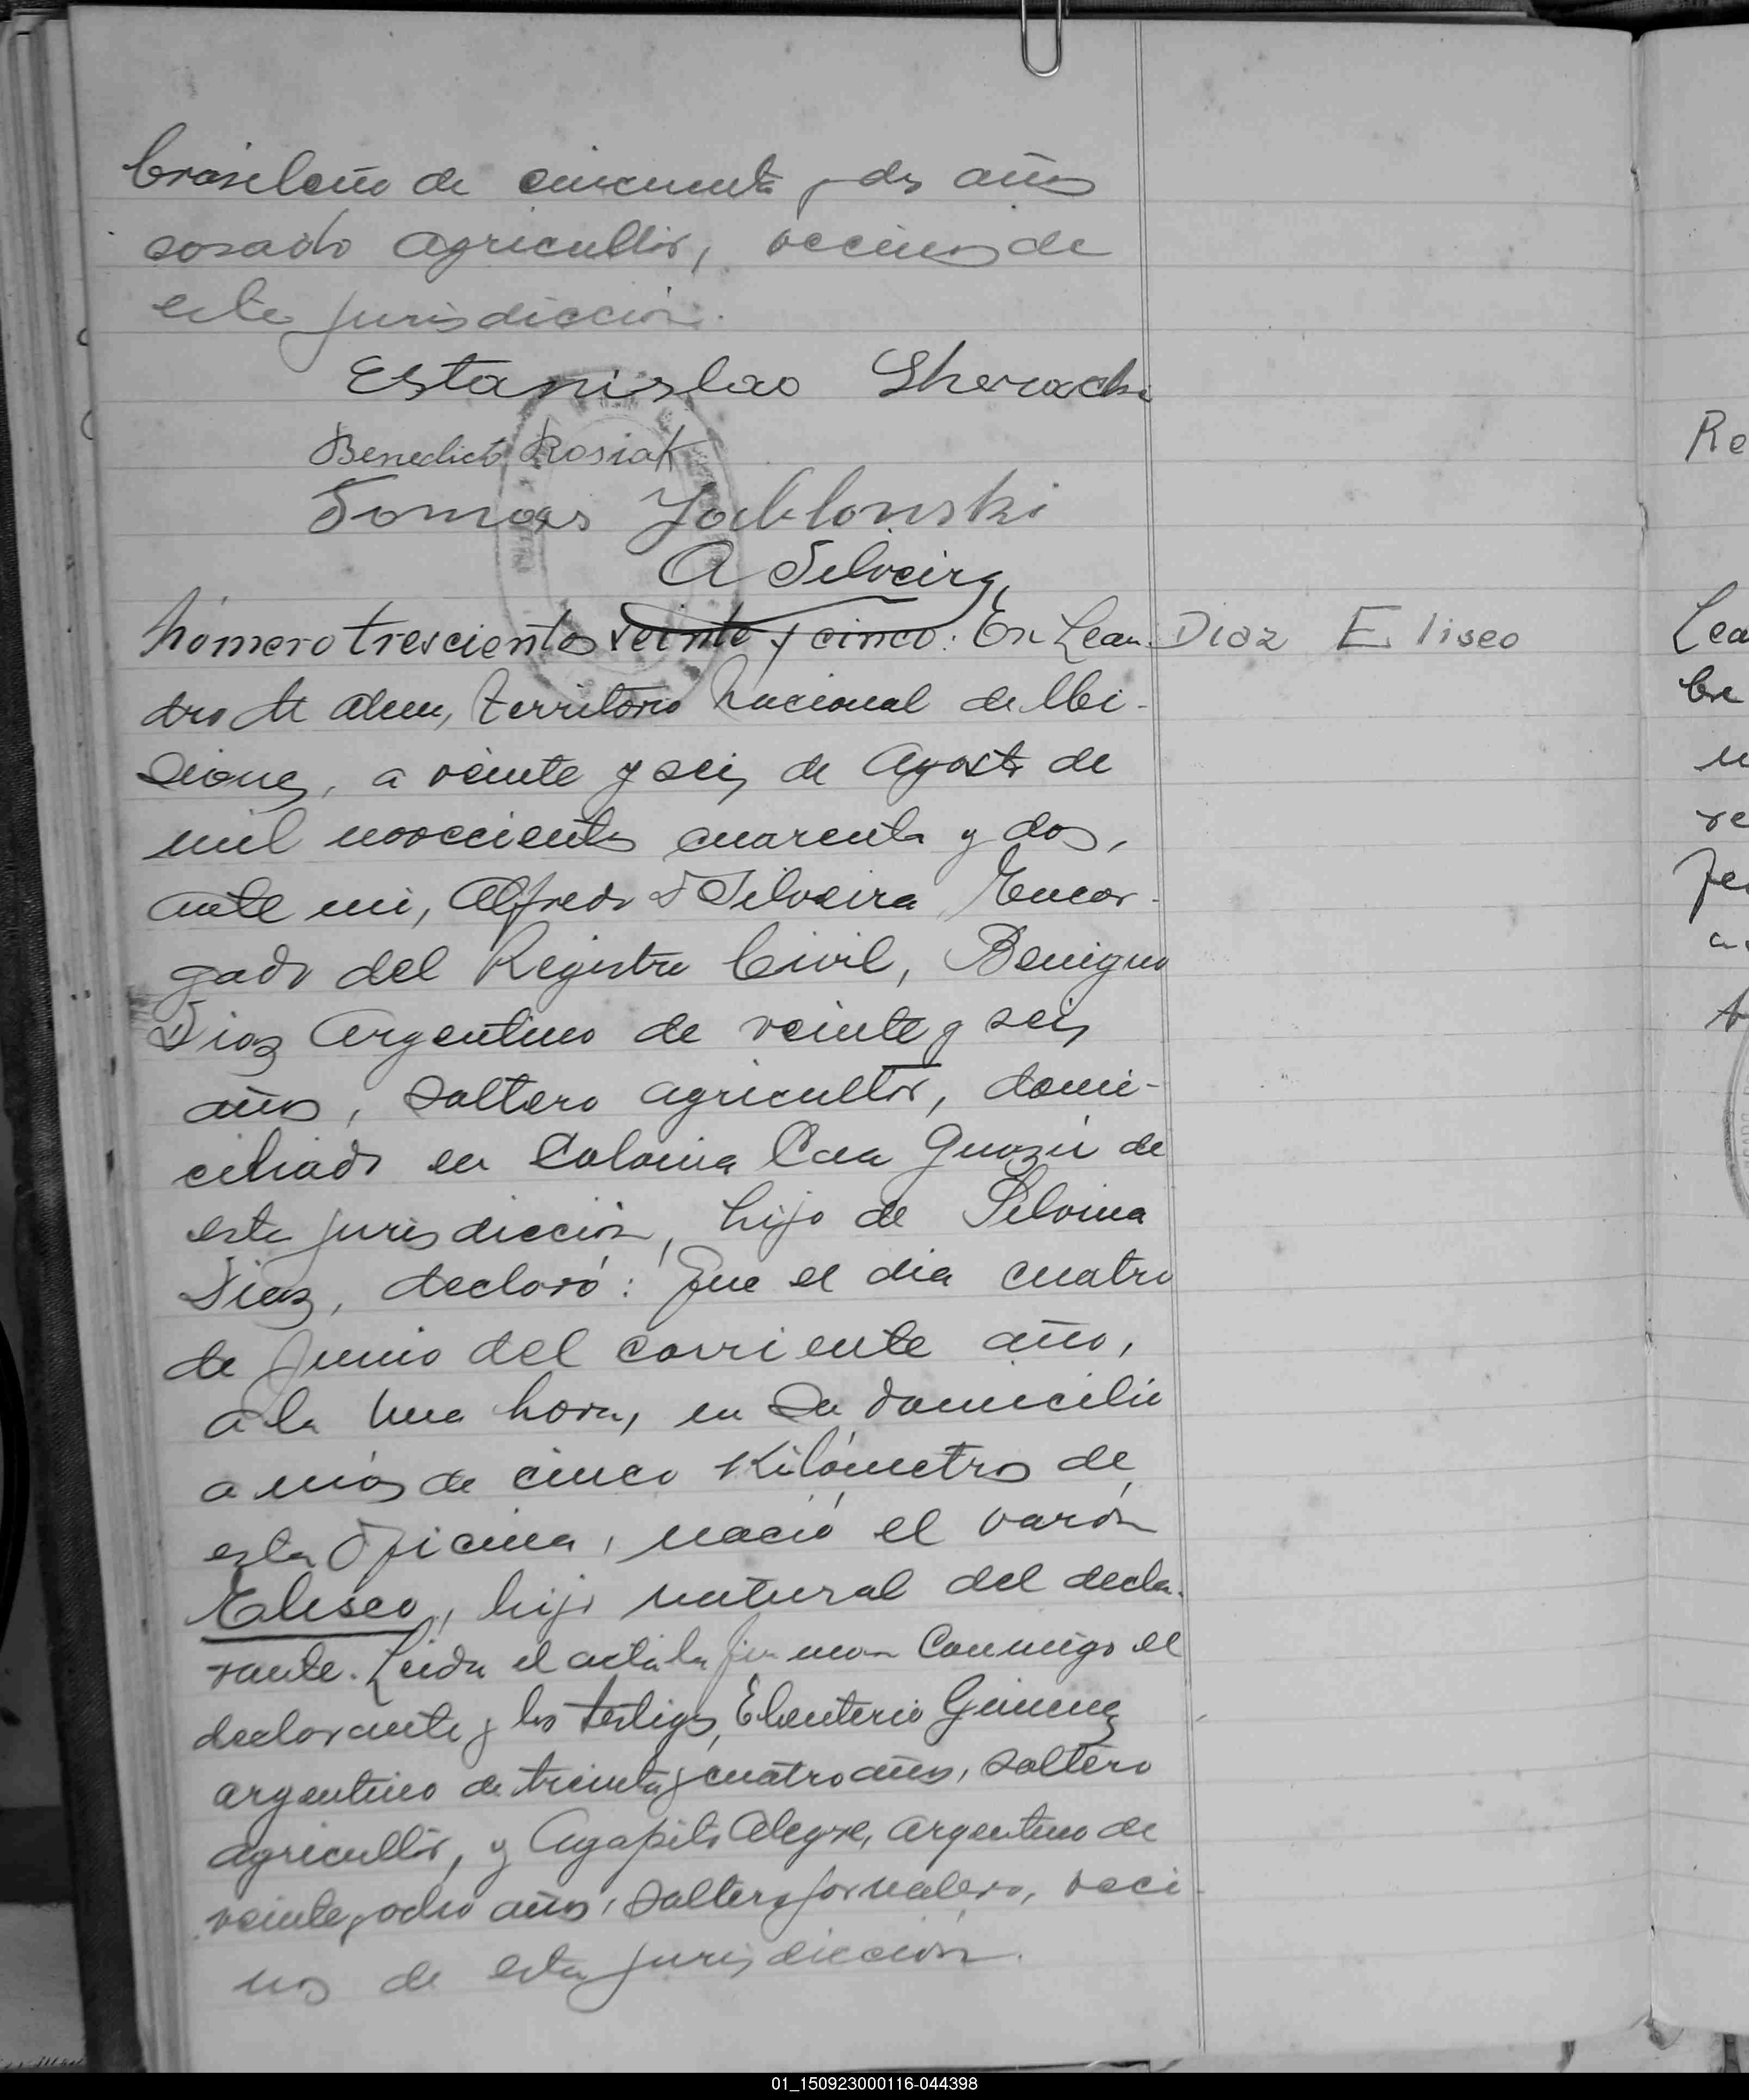 brasileño de cincuenta y dos años
casado agricultor, vecinos de
esta jurisdicción.
Estanislao
Benedicto Rosiak
Tomas Jablonski
A Silveira
Número trescientos veinte y cinco: En Lean- Diaz Eliseo
dro N Alem, territorio Nacional de Mi-
siones, a veinte y seis de Agosto de
mil novecientos cuarenta y dos,
ante mi, Alfredo S Silveira Encar-
gado del Registro Civil, Benigno
Diaz Argentino de veinte y seis
años, soltero agricultor, domi-
ciliado en Colonia Caa Guazú de
esta jurisdicción, hijo de Silvina
Diaz, declaró: Que el dia cuatro
de Junio del corriente año,
a la una hora, en su domicilio
a más de cinco Kilómetros de
esta Oficina, nació el varón
Eliseo, hijo natural del decla-
rante. Leida el acta la firman conmigo el
declarante y los testigos, Eleuterio Gimenez
argentino de treinta y cuatro años, soltero
agricultor, y Agapito Alegre, argentino de
veinte y ocho años, soltero jornalero, veci-
nos de esta jurisdicción.